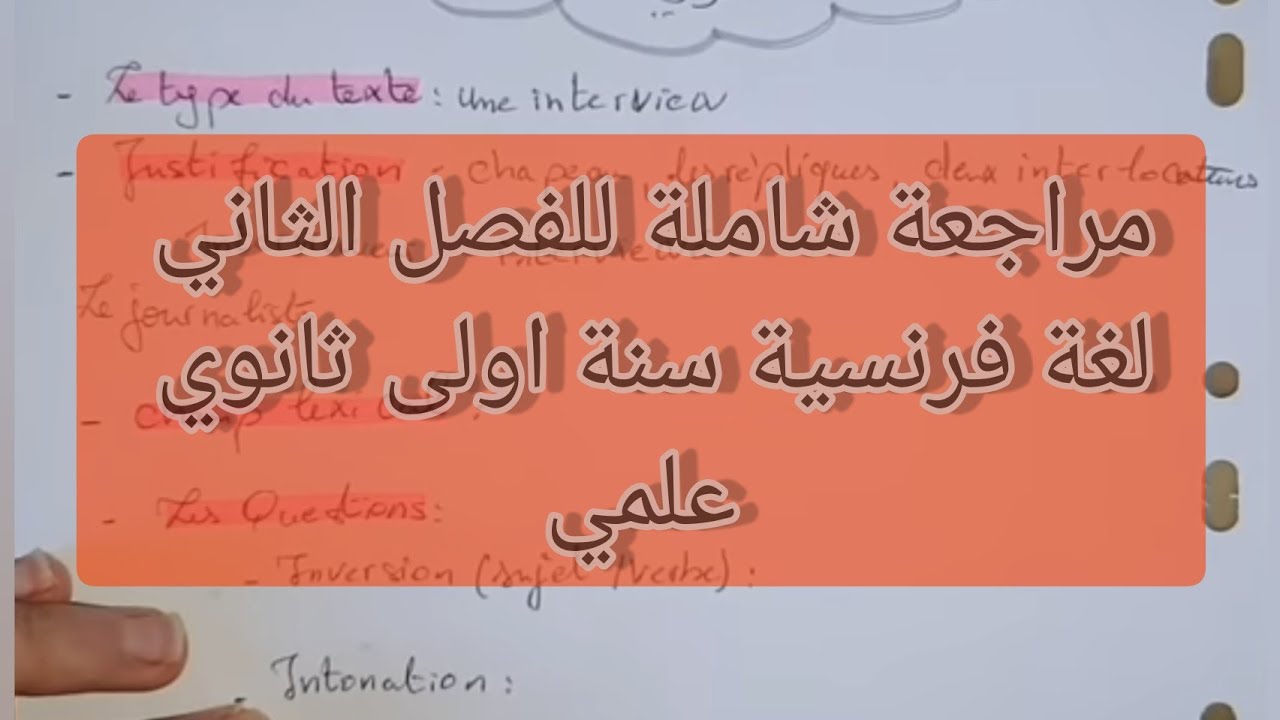 - Le type du texte : une interview
- Justification : chapeau, les répliques, deux interlocuteurs
مراجعة شاملة للفصل الثاني
Le journaliste
لغة فرنسية سنة اولى ثانوي
- champ lexical :
علمي
- Les Questions :
- Inversion (sujet / verbe) :
- Intonation :